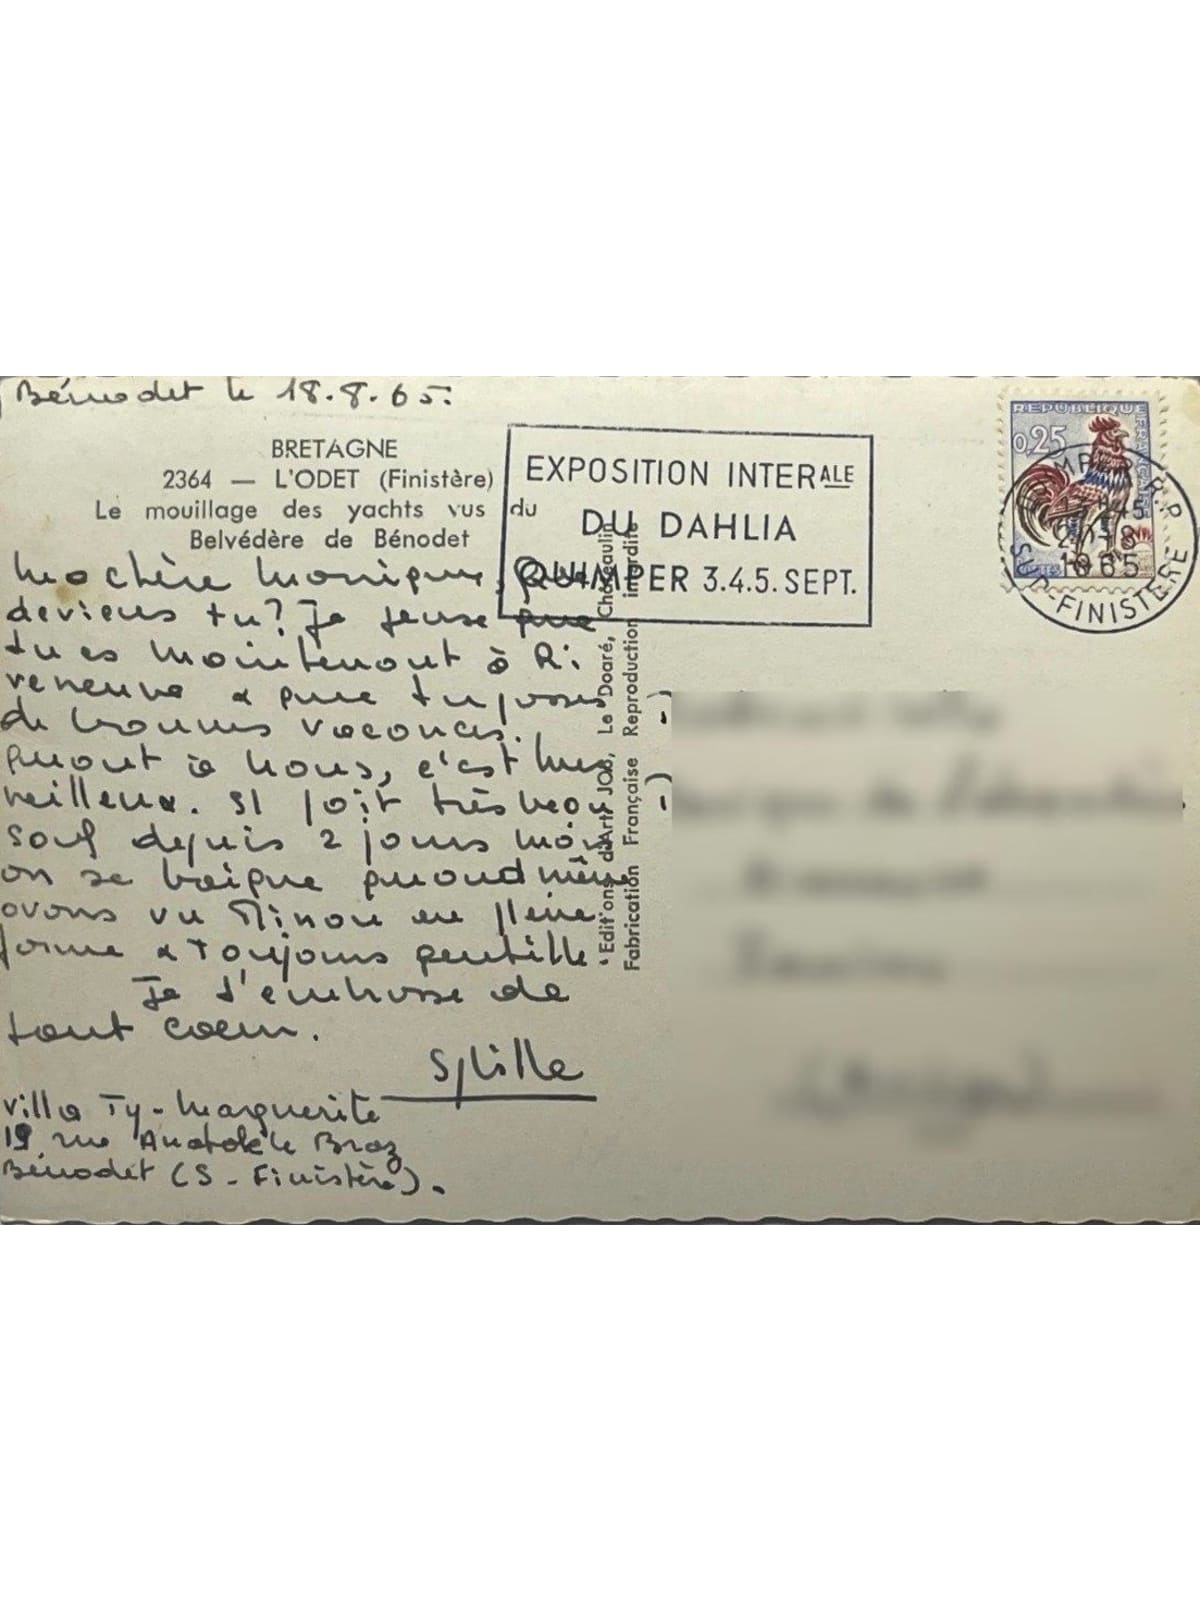 Bénodet le 18.8.65.
BRETAGNE
2364 — L'ODET (Finistère)
Le mouillage des yachts vus du
Belvédère de Bénodet
EXPOSITION INTERALE
DU DAHLIA
QUIMPER 3.4.5. SEPT.
REPUBLIQUE FRANÇAISE
0,25
QUIMPER R.P
1965
SUD-FINISTERE
Ma chère Monique, que
deviens tu? Je pense que
tu es maintenant à Ri
veneuve & que tu passes
de bonnes vacances.
Quant à nous, c'est mer
veilleux. Il fait très beau
sauf depuis 2 jours mais
on se baigne quand même
avons vu Minou en pleine
forme & toujours gentille.
Je t'embrasse de
tout coeur.
Villa Ty-Marguerite
19 rue Anatole le Braz
Bénodet (S-Finistère).
Editions d'Art JOS, Le Doaré, Châteaulin
Fabrication Française Reproduction interdite